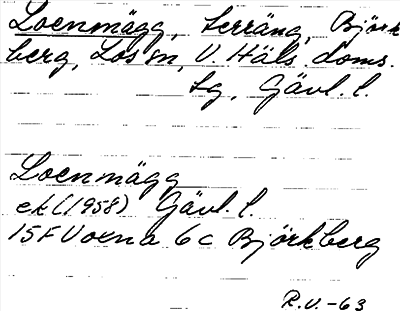 Loenmägg, terräng, Björk
berg, Los sn, V. Häls. doms.
lg, Gävl. l.
Loenmägg
ek (1958) Gävl. l.
15F Voxna 6c Björkberg
R.V.-63